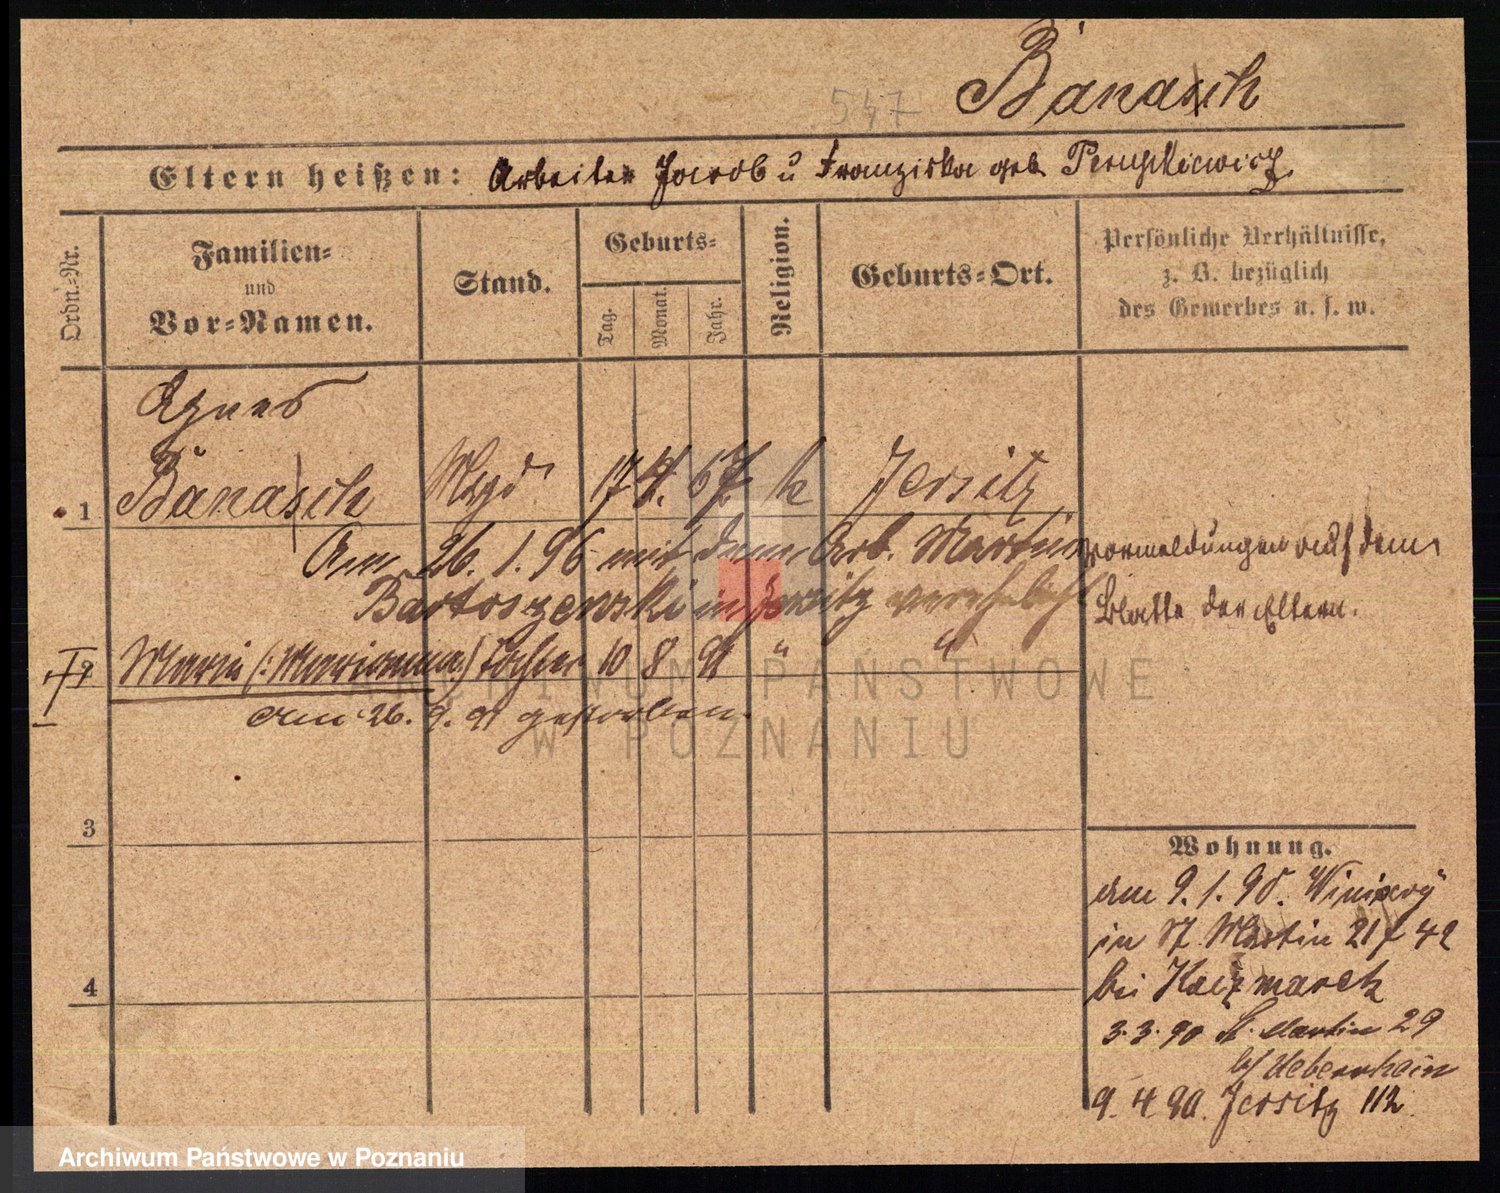 547
Banasch
Eltern heißen: Arbeiter Jacob u Franziska geb.
Ordn.-Nr.
Familien-
und
Vor-Namen.
Stand.
Geburts-
Tag.
Monat.
Jahr.
Religion.
Geburts-Ort.
Persönliche Verhältnisse,
z. B. bezüglich
des Gewerbes u. s. w.
Agnes
1 Banasch Magd 17 4. 67. k Jersitz
Am 26. 1. 96 mit dem Arb. Martin
Bartoszewski in Jersitz verehelicht
Vormeldungen auf dem
Blatte der Eltern.
2 Maria (: Marianna) Tochter 10 8 91 " "
am 26. 9. 91 gestorben.
3
4
Wohnung.
am 9. 1. 90.
in St. Martin 21 42
bei Kaczmarek
3. 3. 90 St. Martin 29
b/ Ueberrhein
9. 4 90. Jersitz 112.
ARCHIWUM PAŃSTWOWE
W POZNANIU
Archiwum Państwowe w Poznaniu